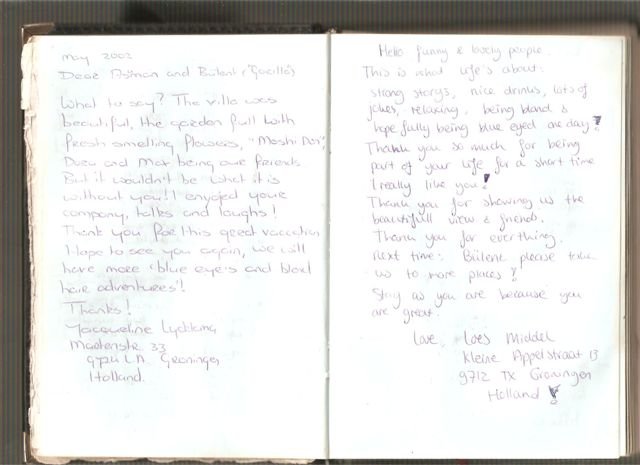 May 2002
Dear Osman and Bülent ("Gorilla")
What to say? The villa was
beautiful, the garden full with
fresh smelling flowers, "Moshi Dov",
Duru and Max being our friends
But it wouldn't be what it is
without you!! I enjoyed your
company, talks and laughs!
Thank you for this great vaccation
Hope to see you again, we will
have more 'blue eye's and blond
hair adventures'!
Thanks!
Jacqueline
33
Groningen
Holland.
Hello funny & lovely people.
This is what life's about:
strong story's, nice drinks, lots of
jokes, relaxing, being blond &
hopefully being blue eyed one day!
Thank you so much for being
part of your life for a short time
I really like you!
Thank you for showing us the
beautifull view & friends.
Thank you for everthing.
next time: Bülent please take
us to more places!
Stay as you are because you
are great.
Love Loes Middel
Kleine Appelstraat 13
9712 TX Groningen
Holland